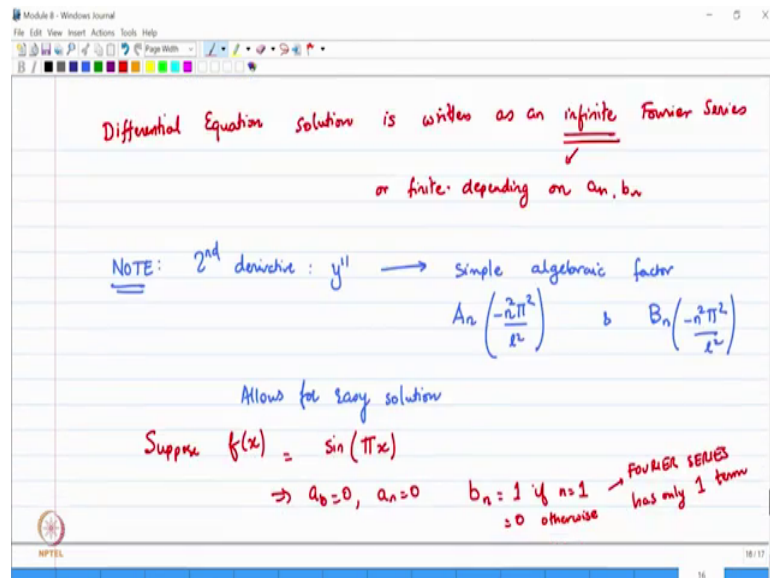 Module 8 - Windows Journal
File Edit View Insert Actions Tools Help
Page Width
B I
Differential Equation solution is written as an infinite Fourier Series
or finite. depending on an, bn
NOTE: 2nd derivative: y" → simple algebraic factor
An (-n²π²/l²) & Bn (-n²π²/l²)
Allows for easy solution
Suppose f(x) = sin(πx)
⇒ a0=0, an=0 bn = 1 if n=1 → FOURIER SERIES
= 0 otherwise has only 1 term
NPTEL
18/17
16